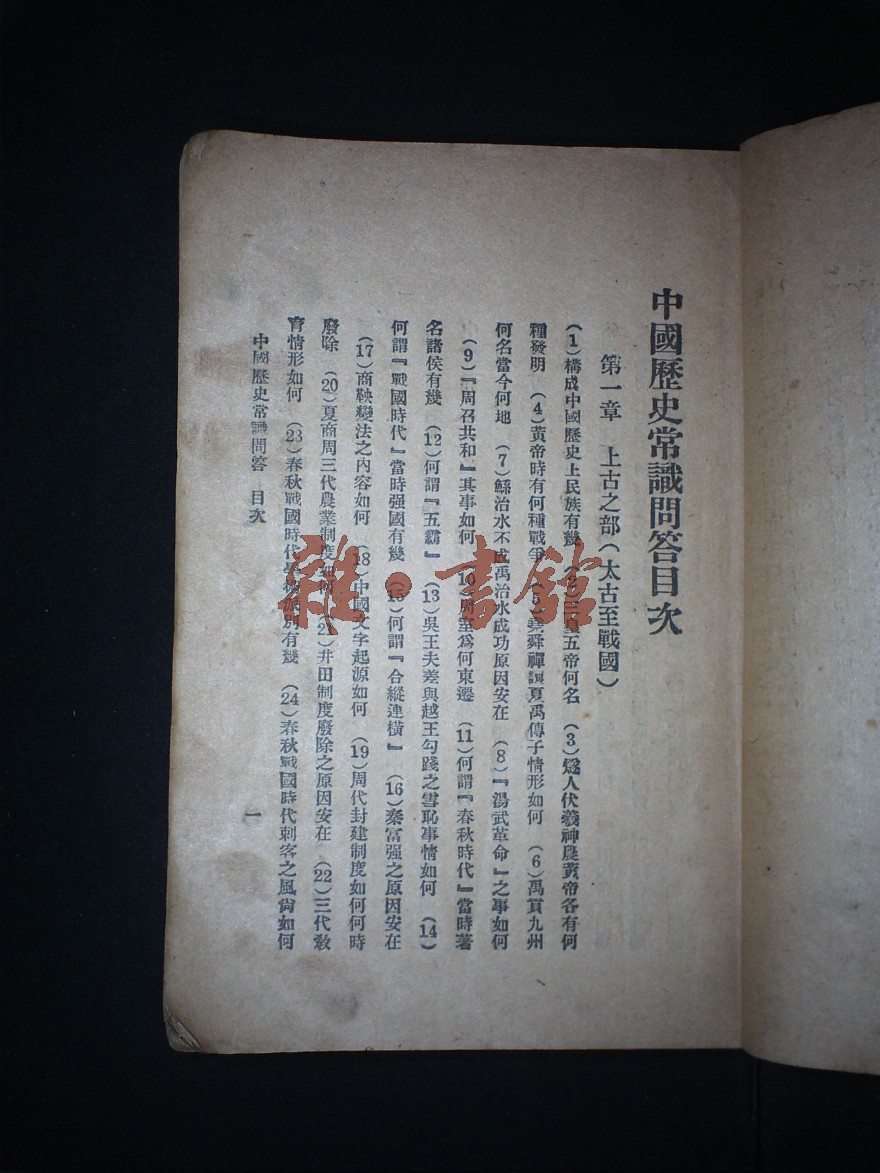 中國歷史常識問答目次
第一章　上古之部（太古至戰國）
（1）構成中國歷史上民族有幾　（2）三皇五帝何名　（3）燧人伏羲神農黃帝各有何
種發明　（4）黃帝時有何種戰爭　（5）堯舜禪讓夏禹傳子情形如何　（6）禹貢九州
何名當今何地　（7）鯀治水不成禹治水成功原因安在　（8）『湯武革命』之事如何
（9）『周召共和』其事如何　（10）周室爲何東遷　（11）何謂『春秋時代』當時著
名諸侯有幾　（12）何謂『五霸』　（13）吳王夫差與越王勾踐之雪恥事情如何　（14）
何謂『戰國時代』當時强國有幾　（15）何謂『合縱連橫』　（16）秦富强之原因安在
（17）商鞅變法之內容如何　（18）中國文字起源如何　（19）周代封建制度如何何時
廢除　（20）夏商周三代農業制度如何　（21）井田制度廢除之原因安在　（22）三代敎
育情形如何　（23）春秋戰國時代學術派別有幾　（24）春秋戰國時代刺客之風尙如何
中國歷史常識問答　目次
一
雜·書館